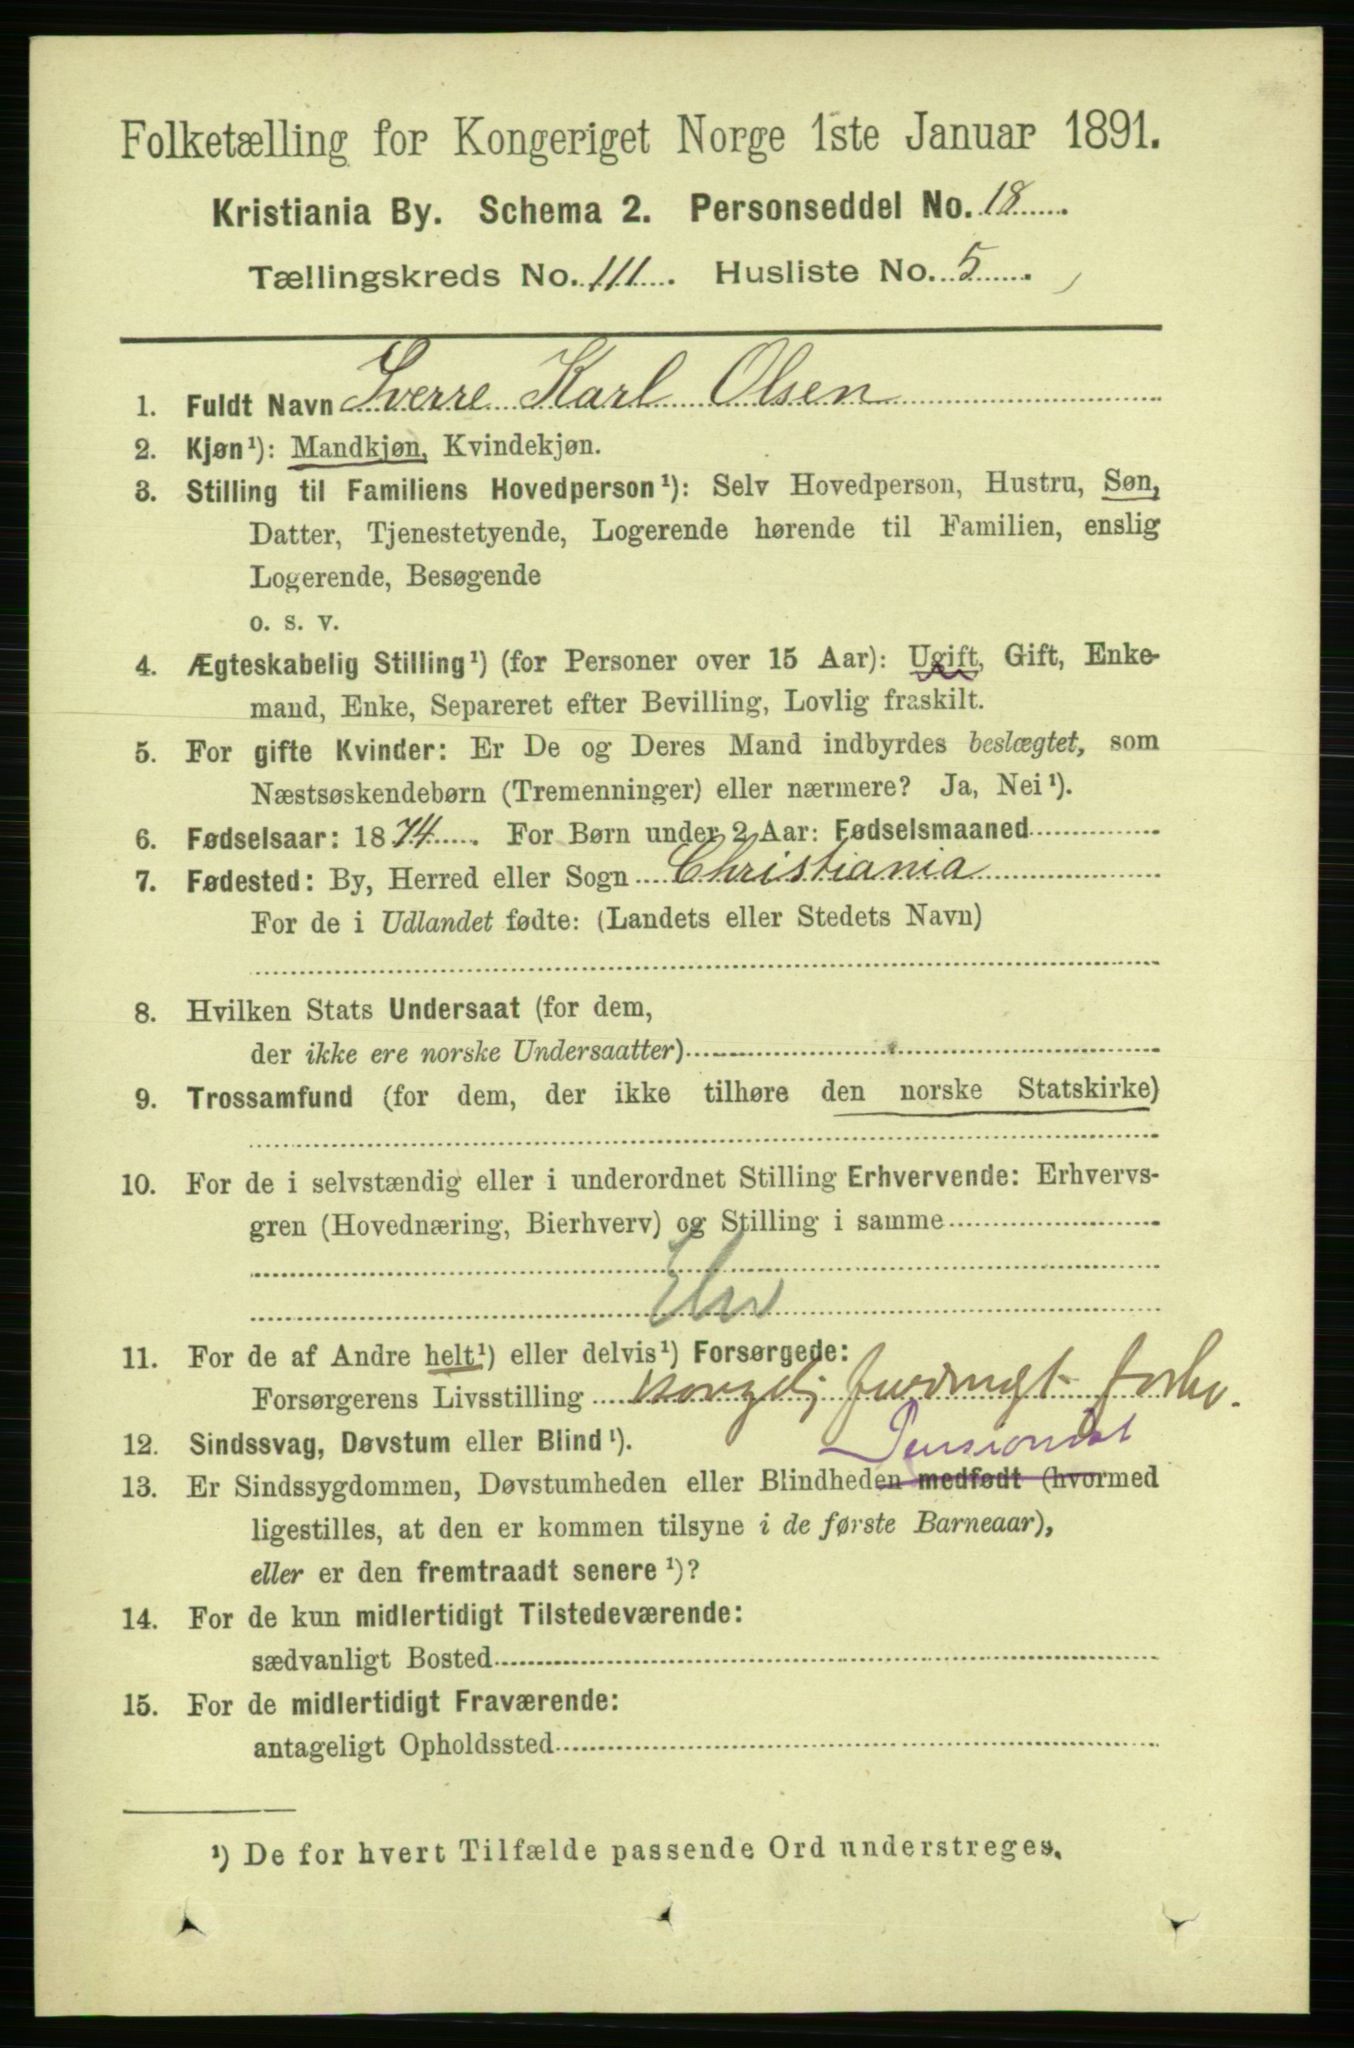 Folketælling for Kongeriget Norge 1ste Januar 1891.
Kristiania By. Schema 2. Personseddel No. 18
Tællingskreds No. 111. Husliste No. 5
1. Fuldt Navn Sverre Karl Olsen
2. Kjøn¹): Mandkjøn, Kvindekjøn.
3. Stilling til Familiens Hovedperson¹): Selv Hovedperson, Hustru, Søn,
Datter, Tjenestetyende, Logerende hørende til Familien, enslig
Logerende, Besøgende
o. s. v.
4. Ægteskabelig Stilling¹) (for Personer over 15 Aar): Ugift, Gift, Enke-
mand, Enke, Separeret efter Bevilling, Lovlig fraskilt.
5. For gifte Kvinder: Er De og Deres Mand indbyrdes beslægtet, som
Næstsøskendebørn (Tremenninger) eller nærmere? Ja, Nei¹).
6. Fødselsaar: 1874. For Børn under 2 Aar: Fødselsmaaned
7. Fødested: By, Herred eller Sogn Christiania
For de i Udlandet fødte: (Landets eller Stedets Navn)
8. Hvilken Stats Undersaat (for dem,
der ikke ere norske Undersaatter)
9. Trossamfund (for dem, der ikke tilhøre den norske Statskirke)
10. For de i selvstændig eller i underordnet Stilling Erhvervende: Erhvervs-
gren (Hovednæring, Bierhverv) og Stilling i samme
Elev
11. For de af Andre helt¹) eller delvis¹) Forsørgede:
Forsørgerens Livsstilling
12. Sindssvag, Døvstum eller Blind¹).
13. Er Sindssygdommen, Døvstumheden eller Blindheden medfødt (hvormed
ligestilles, at den er kommen tilsyne i de første Barneaar),
eller er den fremtraadt senere¹)?
14. For de kun midlertidigt Tilstedeværende:
sædvanligt Bosted
15. For de midlertidigt Fraværende:
antageligt Opholdssted
¹) De for hvert Tilfælde passende Ord understreges.